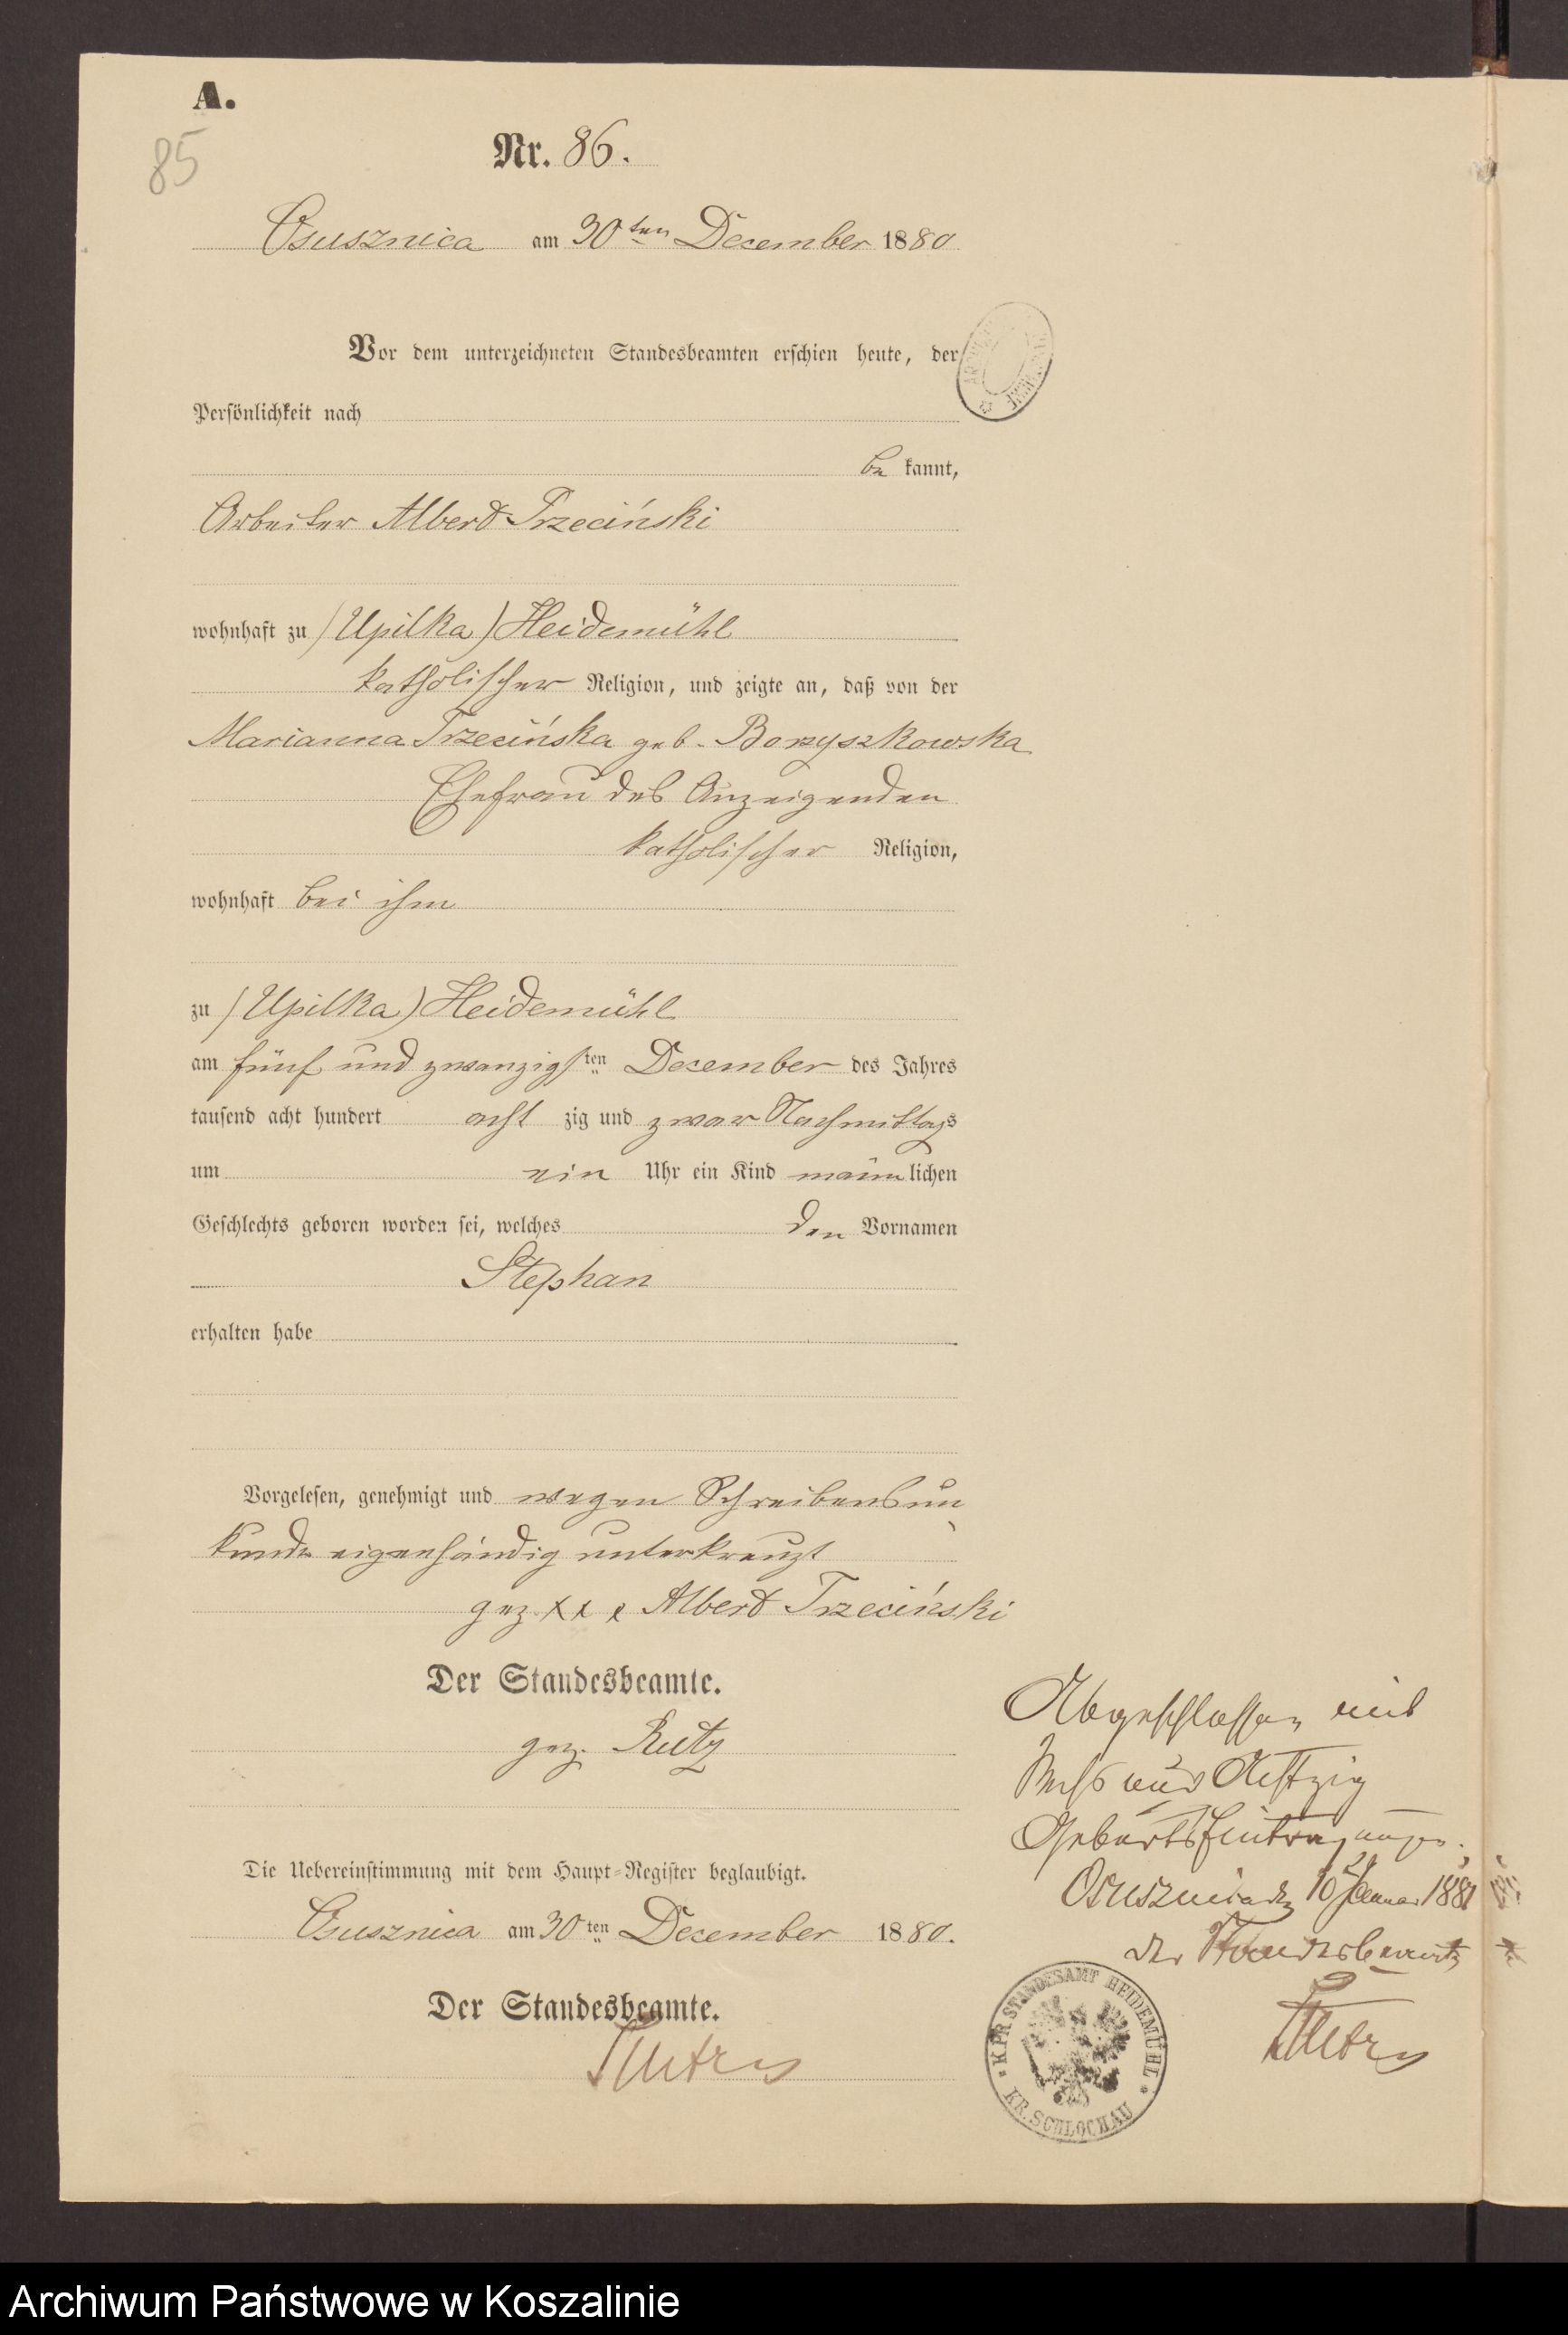 A.
85
Nr. 86.
Osusznica am 30ten December 1880
Vor dem unterzeichneten Standesbeamten erschien heute, der
Persönlichkeit nach
be kannt,
Arbeiter Albert Trzeciński
wohnhaft zu (Upilka) Heidemühl
katholischer Religion, und zeigte an, daß von der
Marianna Trzecińska geb. Borzyszkowska
Ehefrau des Anzeigenden
katholischer Religion,
wohnhaft bei ihm
zu (Upilka) Heidemühl
am fünf und zwanzigsten December des Jahres
tausend acht hundert acht zig und zwar Nachmittags
um ein Uhr ein Kind männlichen
Geschlechts geboren worden sei, welches den Vornamen
Stephan
erhalten habe
Vorgelesen, genehmigt und wegen Schreibensun
kunde eigenhändig unterkreuzt
gez. xxx Albert Trzeciński
Der Standesbeamte.
gez. Rutz
Die Uebereinstimmung mit dem Haupt-Register beglaubigt.
Osusznica am 30ten December 1880.
Der Standesbeamte.
Abgeschlossen mit
Sechs und Achtzig
Geburts Eintragungen.
Osusznica den 10 Januar 1881
der Standesbeamte
K. PR. STANDESAMT HEIDEMÜHL
KR. SCHLOCHAU
Archiwum Państwowe w Koszalinie